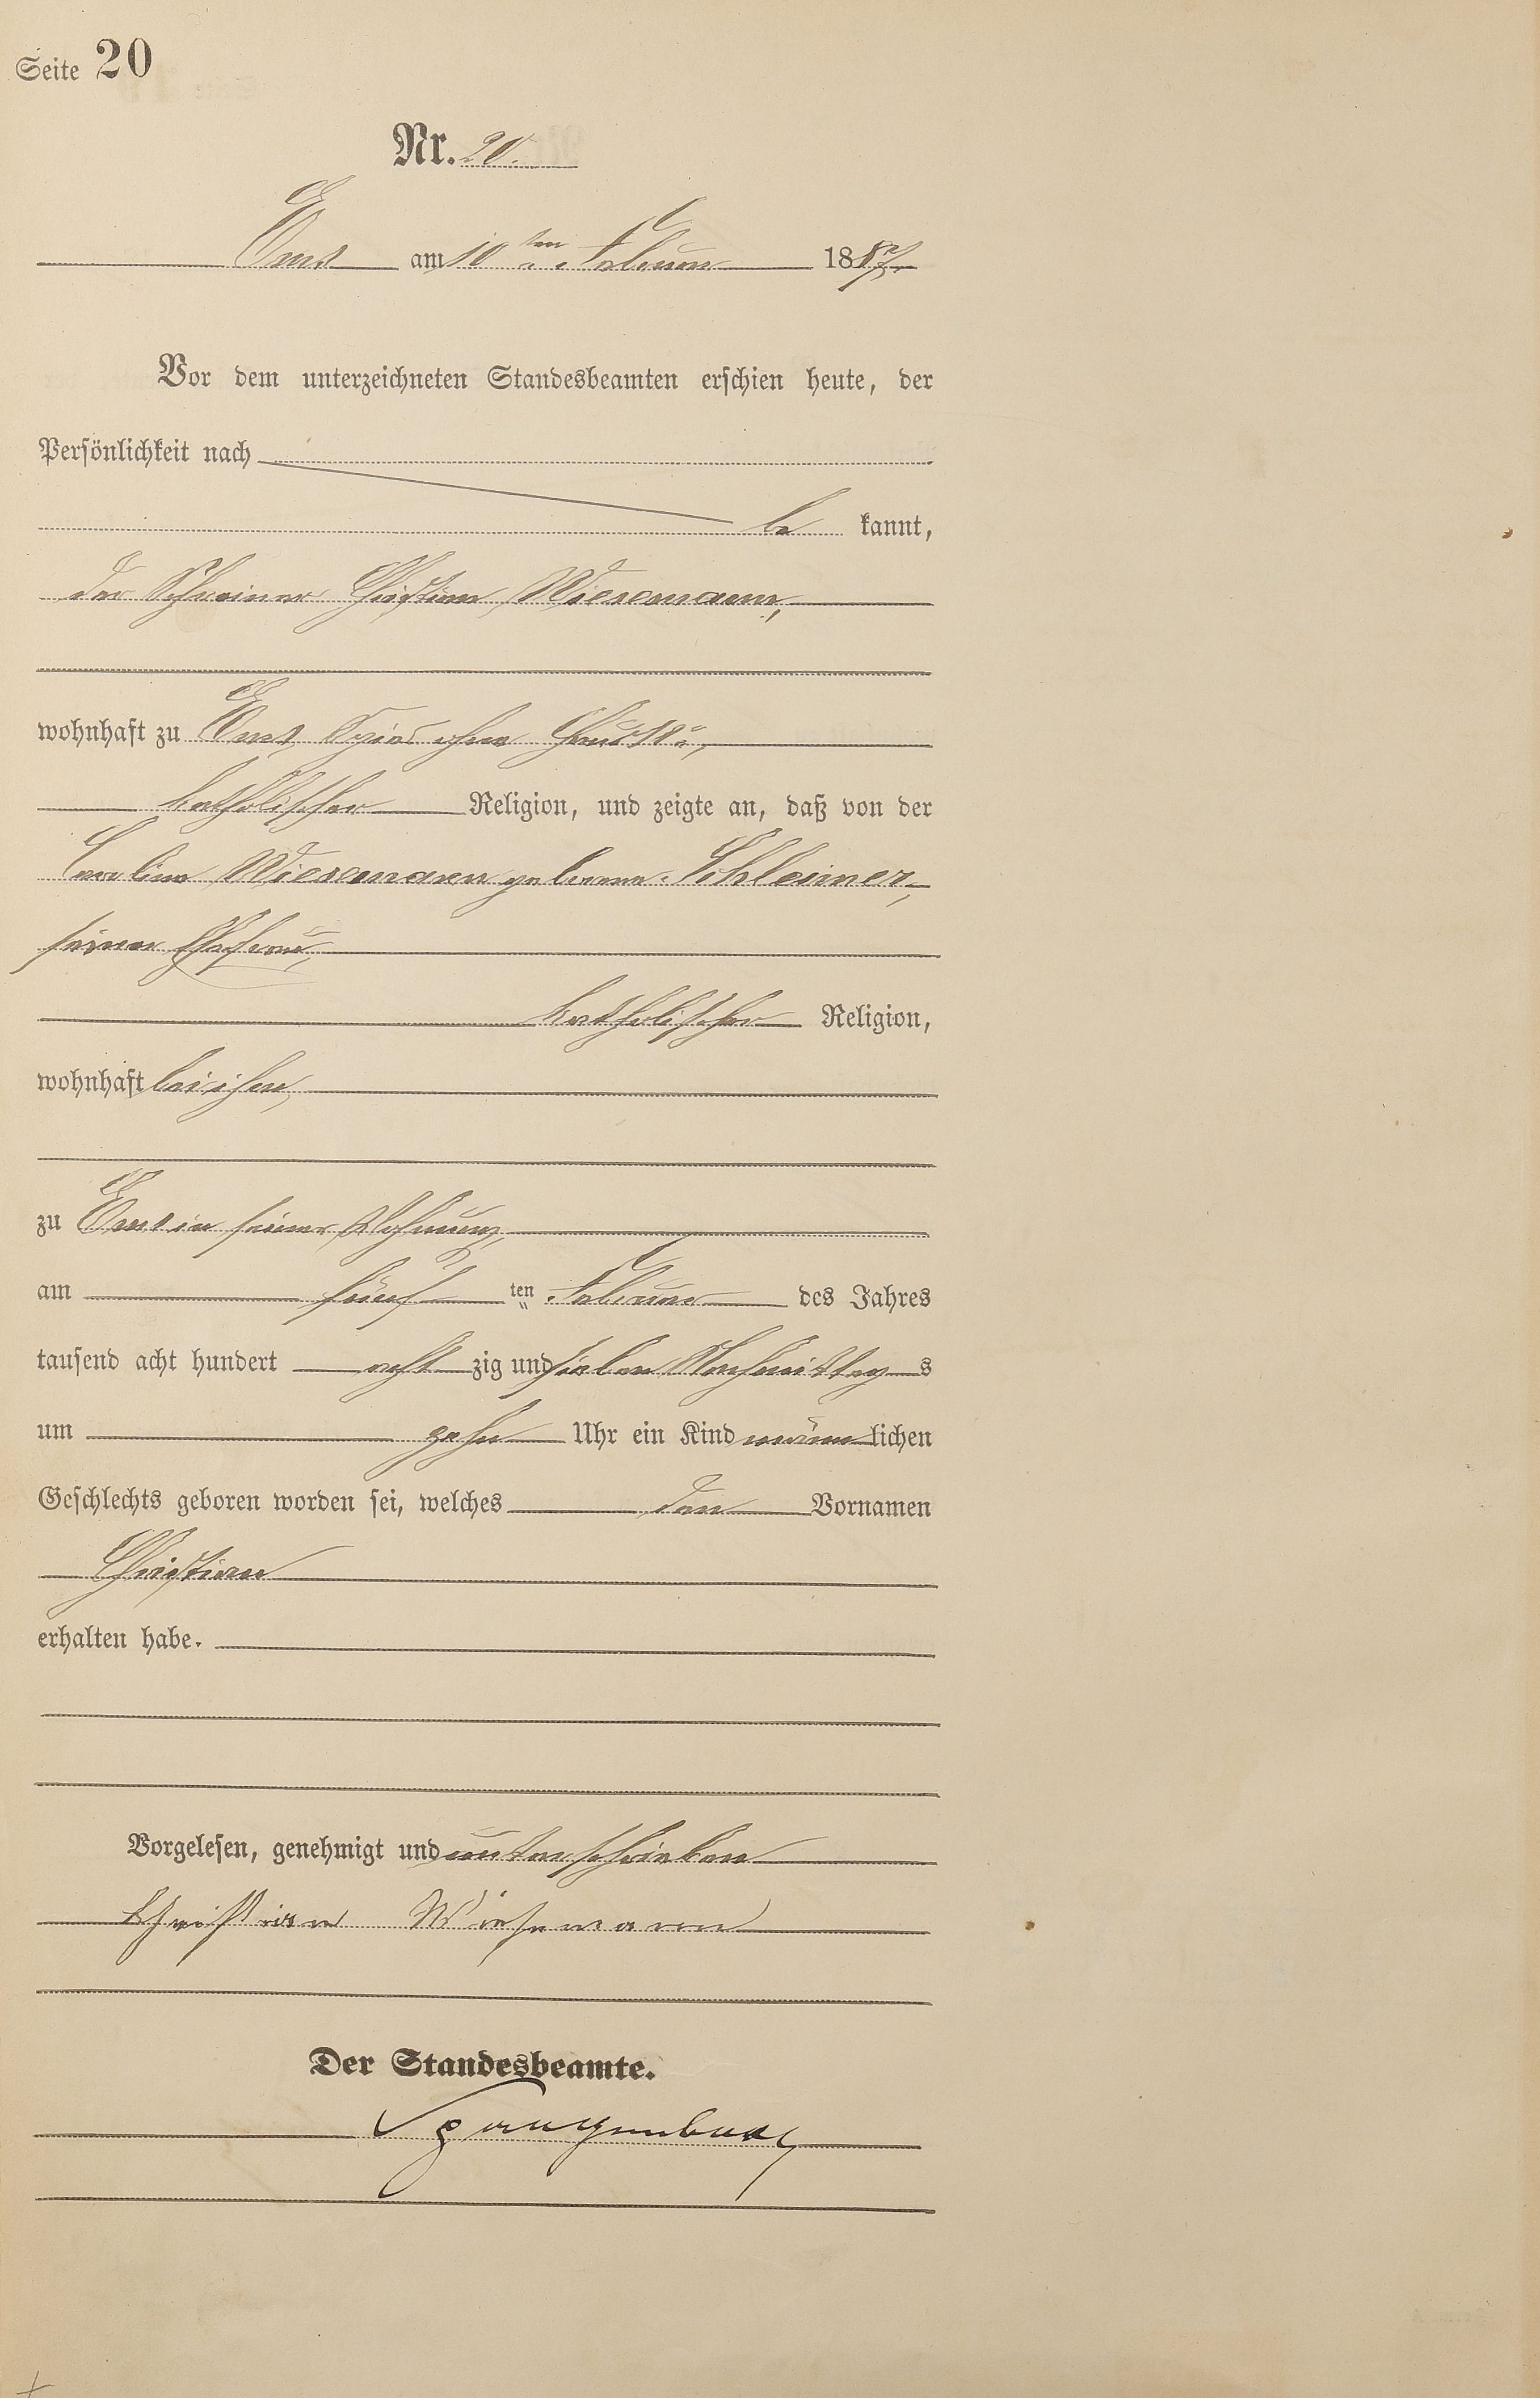 Seite 20
Nr. 20.
Ems am 10ten Februar 1887.
Vor dem unterzeichneten Standesbeamten erschien heute, der
Persönlichkeit nach
be kannt,
der Schreiner Christian Wiesemann,
wohnhaft zu Ems
katholischer Religion, und zeigte an, daß von der
Carolina Wiesemann geborene Schleimer,
seiner Ehefrau,
katholischer Religion,
wohnhaft bei ihm,
zu Ems in seiner Wohnung,
am fünf ten Februar des Jahres
tausend acht hundert acht zig und sieben Nachmittag s
um zehn Uhr ein Kind männ lichen
Geschlechts geboren worden sei, welches den Vornamen
Christian
erhalten habe.
Vorgelesen, genehmigt und unterschrieben
Christian Wiesemann
Der Standesbeamte.
Spangenberg